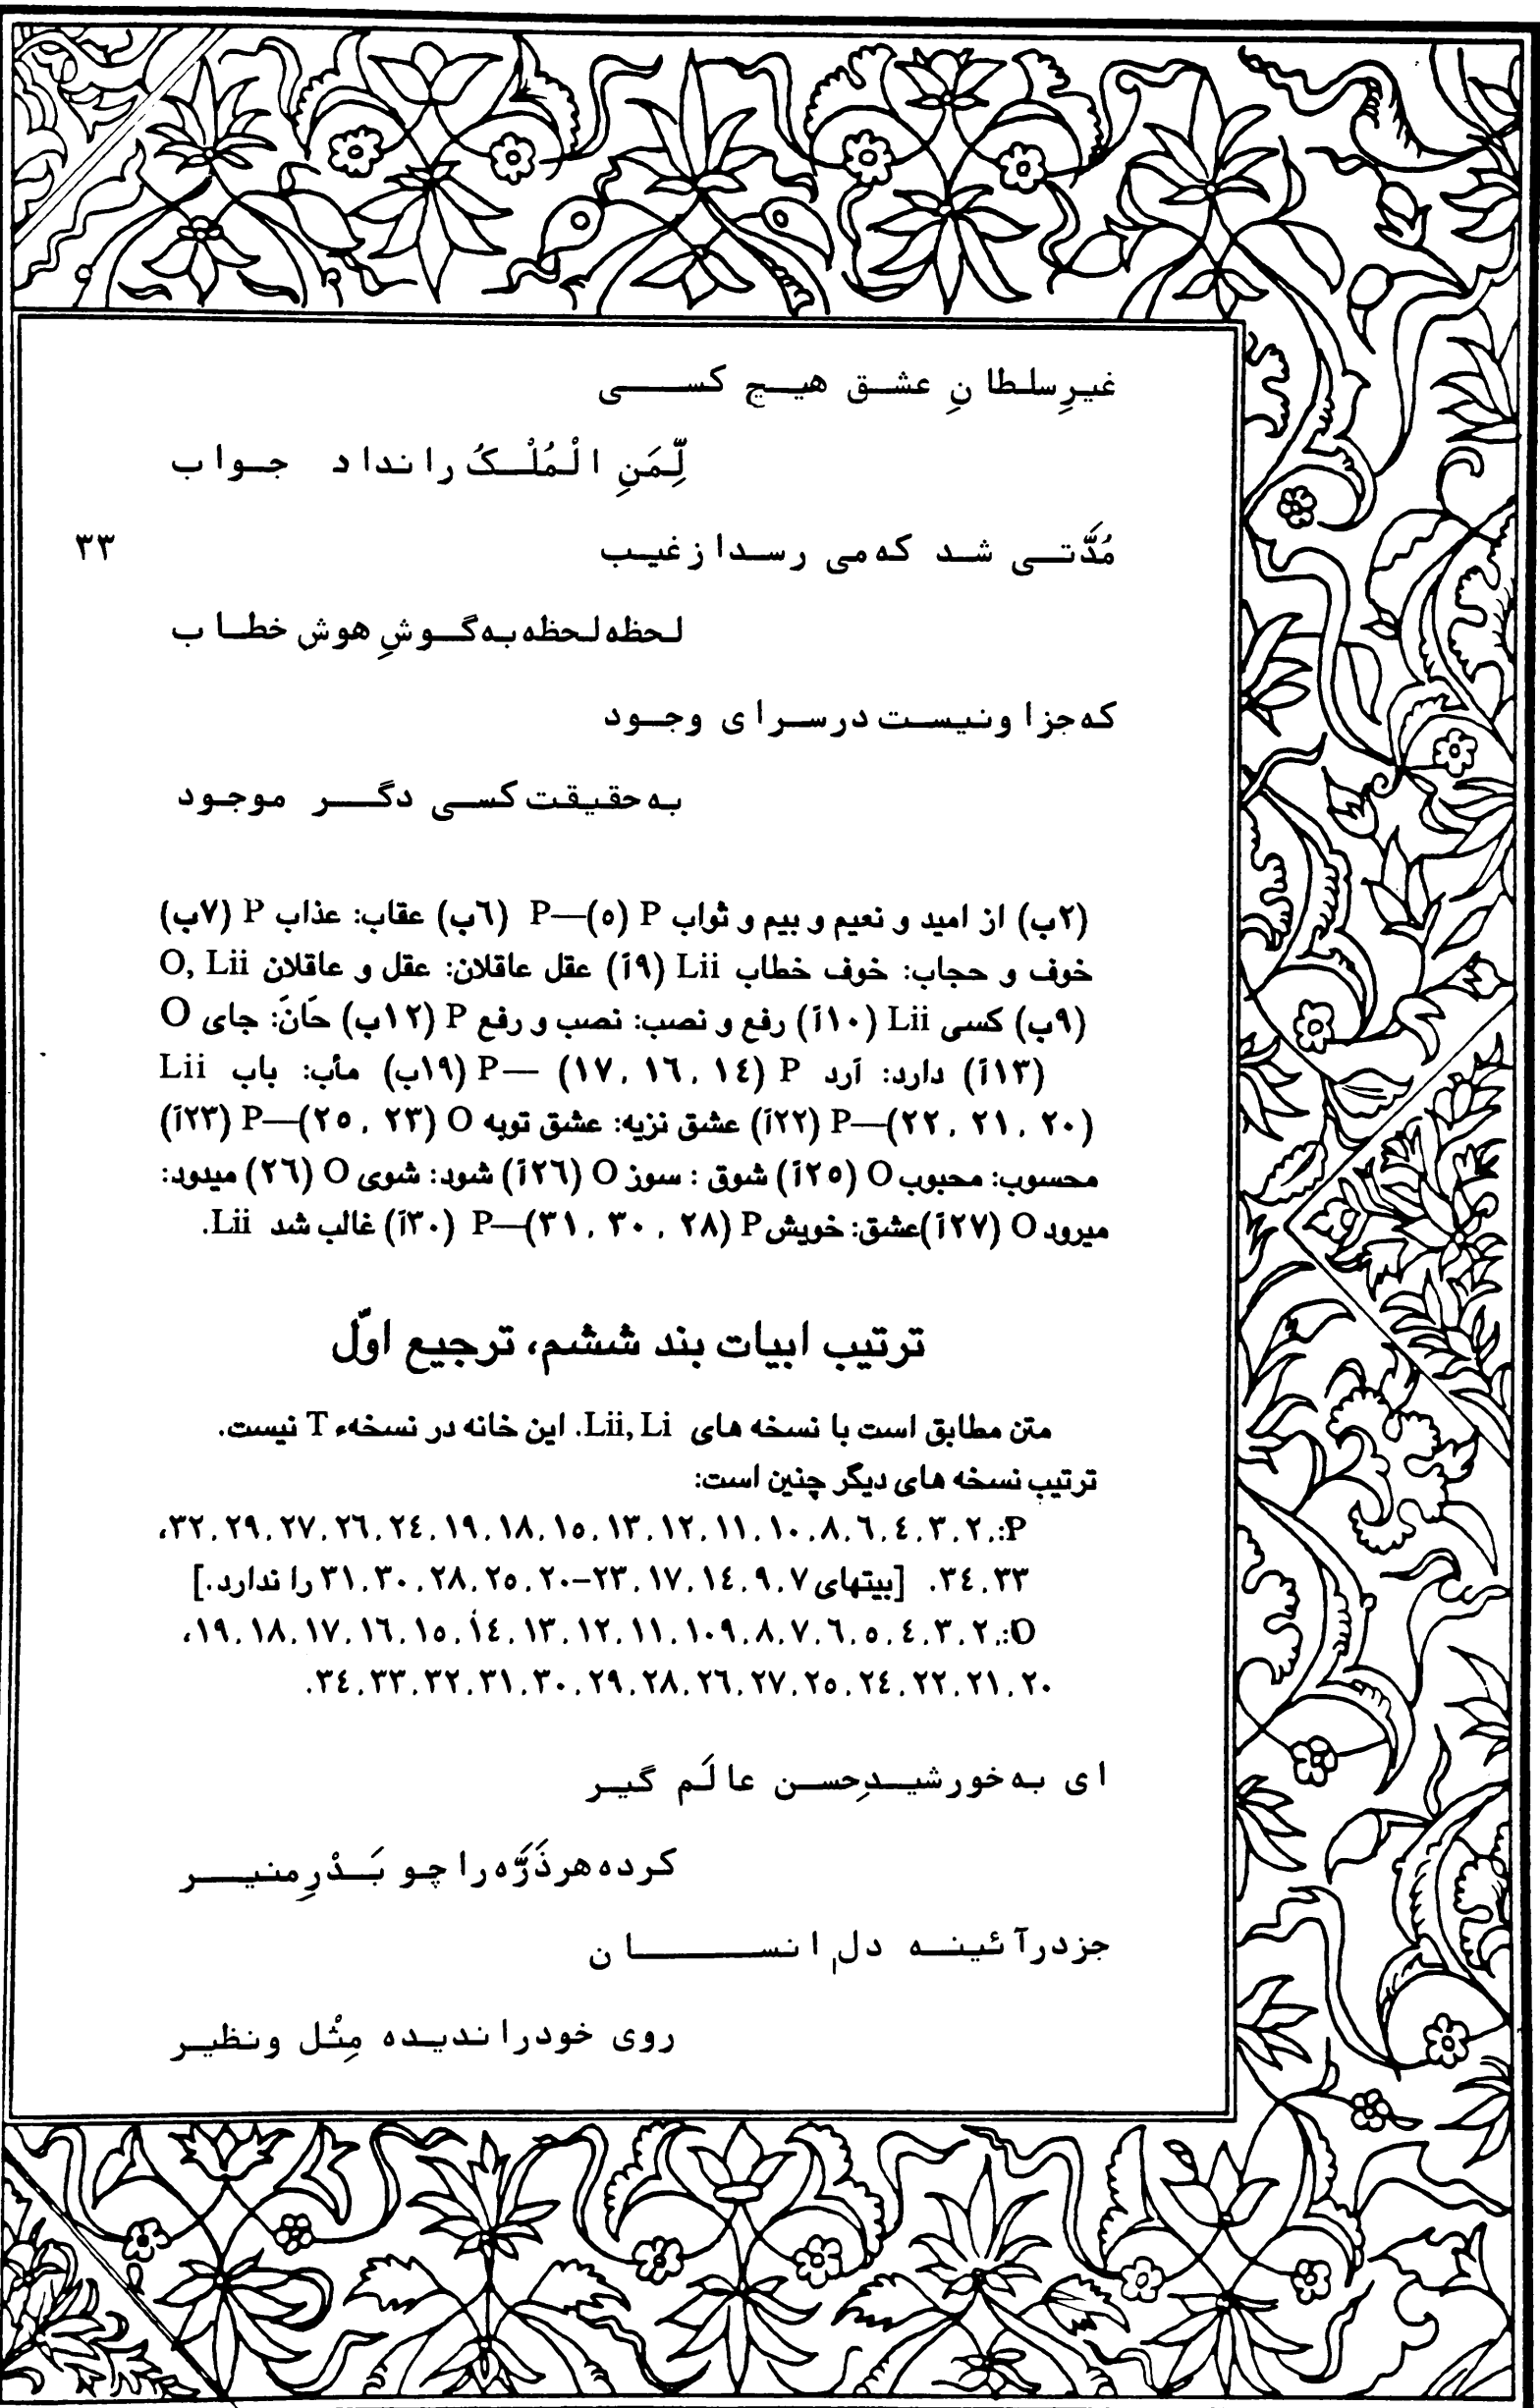 غیرِ سلطانِ عشق هیچ کسی
لِّمَنِ الْمُلْکُ را نداد جواب
مُدَّتی شد که می رسد از غیب ۳۳
لحظه لحظه به گوشِ هوش خطاب
که جز او نیست در سرای وجود
به حقیقت کسی دگر موجود
(۲ب) از امید و نعیم و بیم و ثواب P (٥)—P (٦ب) عقاب: عذاب P (۷ب)
خوف و حجاب: خوف خطاب Lii (۹آ) عقل عاقلان: عقل و عاقلان O, Lii
(۹ب) کسی Lii (۱۰آ) رفع و نصب: نصب و رفع P (۱۲ب) حَانَ: جای O
(۱۳آ) دارد: آرد P (۱٤، ۱٦، ۱۷) —P (۱۹ب) مأب: باب Lii
(۲۰، ۲۱، ۲۲)—P (۲۲آ) عشق نزیه: عشق توبه O (۲۳، ۲٥)—P (۲۳آ)
محسوب: محبوب O (۲٥آ) شوق : سوز O (۲٦آ) شود: شوی O (۲٦) میدود:
میرود O (۲۷آ) عشق: خویش P (۲۸، ۳۰، ۳۱)—P (۳۰آ) غالب شد Lii.
ترتیب ابیات بند ششم، ترجیع اوّل
متن مطابق است با نسخه های Lii, Li. این خانه در نسخهء T نیست.
ترتیب نسخه های دیگر چنین است:
P:، ۲، ۳، ٤، ٦، ۸، ۱۰، ۱۱، ۱۲، ۱۳، ۱٥، ۱۸، ۱۹، ۲٤، ۲٦، ۲۷، ۲۹، ۳۲،
۳۳، ۳٤. [بیتهای ۷، ۹، ۱٤، ۱۷، ۲۳-۲۰، ۲٥، ۲۸، ۳۰، ۳۱ را ندارد.]
O:، ۲، ۳، ٤، ٥، ٦، ۷، ۸، ۱۰۹، ۱۱، ۱۲، ۱۳، ۱٤، ۱٥، ۱٦، ۱۷، ۱۸، ۱۹،
۲۰، ۲۱، ۲۲، ۲٤، ۲٥، ۲۷، ۲٦، ۲۸، ۲۹، ۳۰، ۳۱، ۳۲، ۳۳، ۳٤.
ای به خورشیدِ حسن عالَم گیر
کرده هر ذَرَّه را چو بَدْرِ منیر
جز در آئینه دل انسان
روی خود را ندیده مِثْل و نظیر